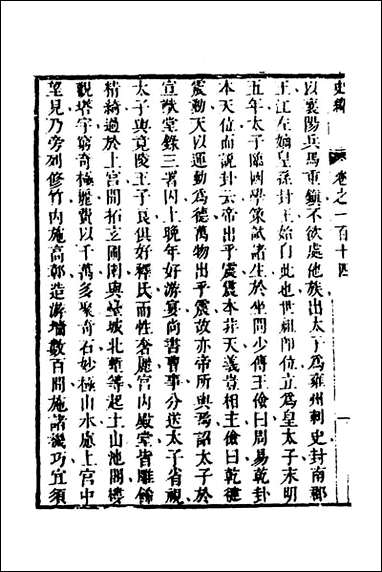 史纂 卷之一百十四 一
以襄陽兵馬重鎮不欲處他族出太子爲雍州刺史封南郡
王江左嫡皇孫封王始自此也世祖卽位立爲皇太子末明
五年太子臨國學策試諸生於坐問少傅王儉曰周易乾卦
本天位而說卦云帝出乎震震本非天義豈相主儉曰乾健
震動天以運動爲德萬物出乎震故亦帝所與焉詔太子於
宣猷堂錄三署囚上晚年好游宴尚書曹事分送太子省視
太子與竟陵王子良俱好釋氏而性奢麗宮内殿堂皆雕餙
精綺過於上宮開拓玄圃園與臺城北塹等起土山池閣樓
觀塔宇窮奇極麗費以千萬多聚奇石妙極山水處上宮中
望見乃旁列修竹内施高鄣造游墻數百間施諸機巧宜須